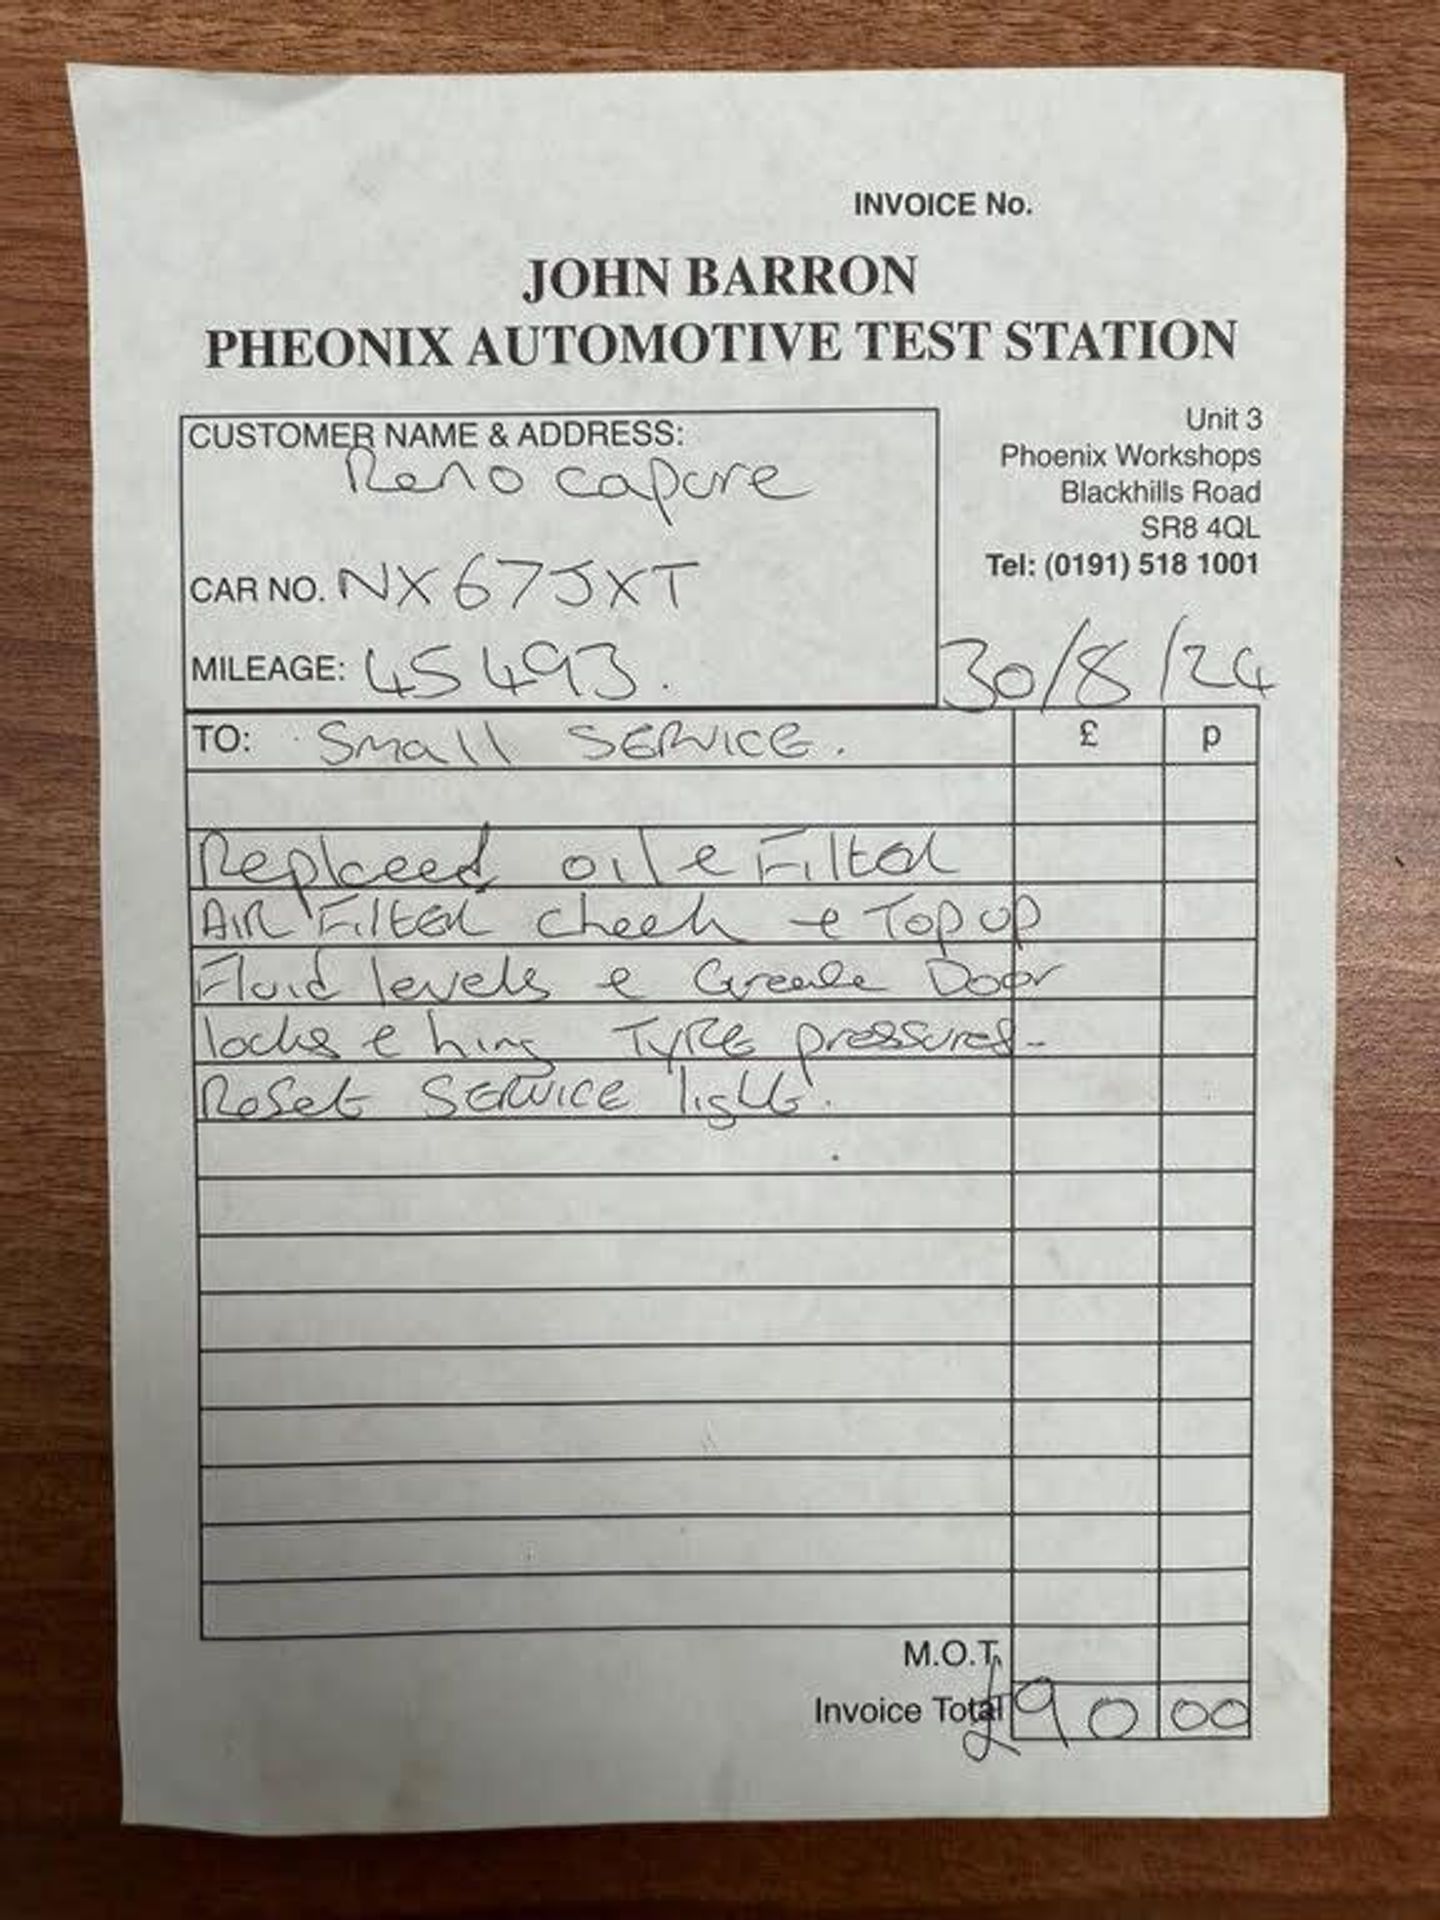 INVOICE No.
JOHN BARRON
PHEONIX AUTOMOTIVE TEST STATION
CUSTOMER NAME & ADDRESS:
Reno capure
CAR NO. NX67JXT
MILEAGE: 45493.
Unit 3
Phoenix Workshops
Blackhills Road
SR8 4QL
Tel: (0191) 518 1001
30/8/24
TO: Small SERVICE. £ p
Replaced oil e Filter
AIR Filter check e Top up
Fluid levels e Grease Door
locks e hing TYRE pressures-
Reset SERVICE light.
M.O.T.
Invoice Total £90 00